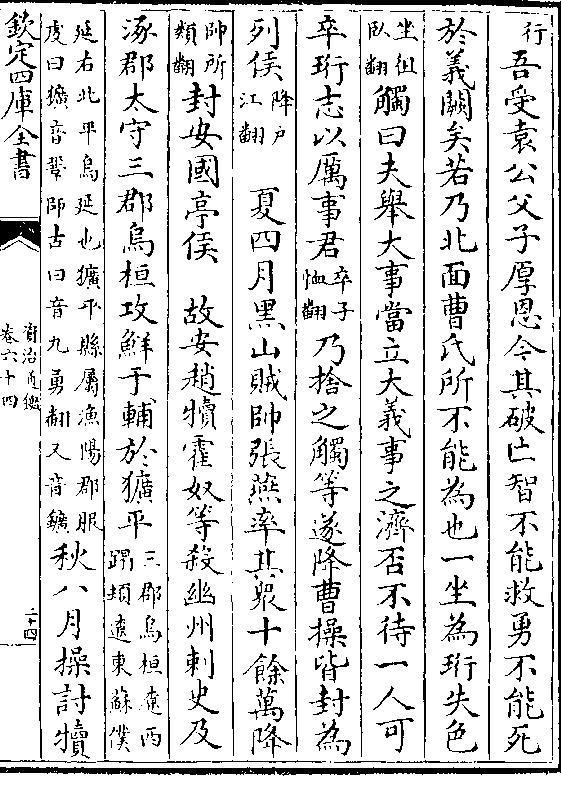 行吾受袁公父子厚恩今其破亡智不能救勇不能死
於義闕矣若乃北面曹氏所不能為也一坐為珩失色
坐徂臥翻觸曰夫舉大事當立大義事之濟否不待一人可
卒珩志以厲事君卒子恤翻乃捨之觸等遂降曹操皆封為
列侯降户江翻 夏四月黑山賊帥張燕率其衆十餘萬降
帥所類翻封安國亭侯 故安趙犢霍奴等殺幽州刺史及
涿郡太守三郡烏桓攻鮮于輔於獷平三郡烏桓遼西蹋頓遼東蘇僕
延右北平烏延也獷平縣屬漁陽郡服虔曰獷音鞏師古曰音九勇翻又音鑛秋八月操討犢
欽定四庫全書
資治通鑑
卷六十四
二十四